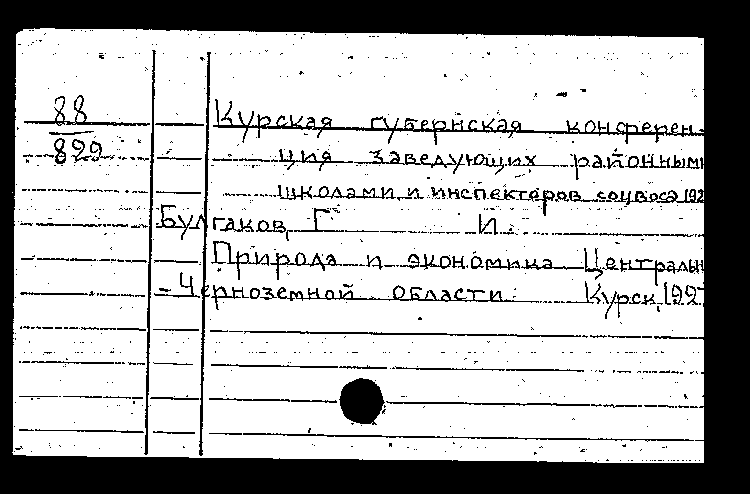 88
829
Курская губернская конферен-
ция заведующих районными
школами и инспекторов соцвоса 192
Булгаков, Г. И.
Природа и экономика Центральн
-Черноземной области. Курск, 192